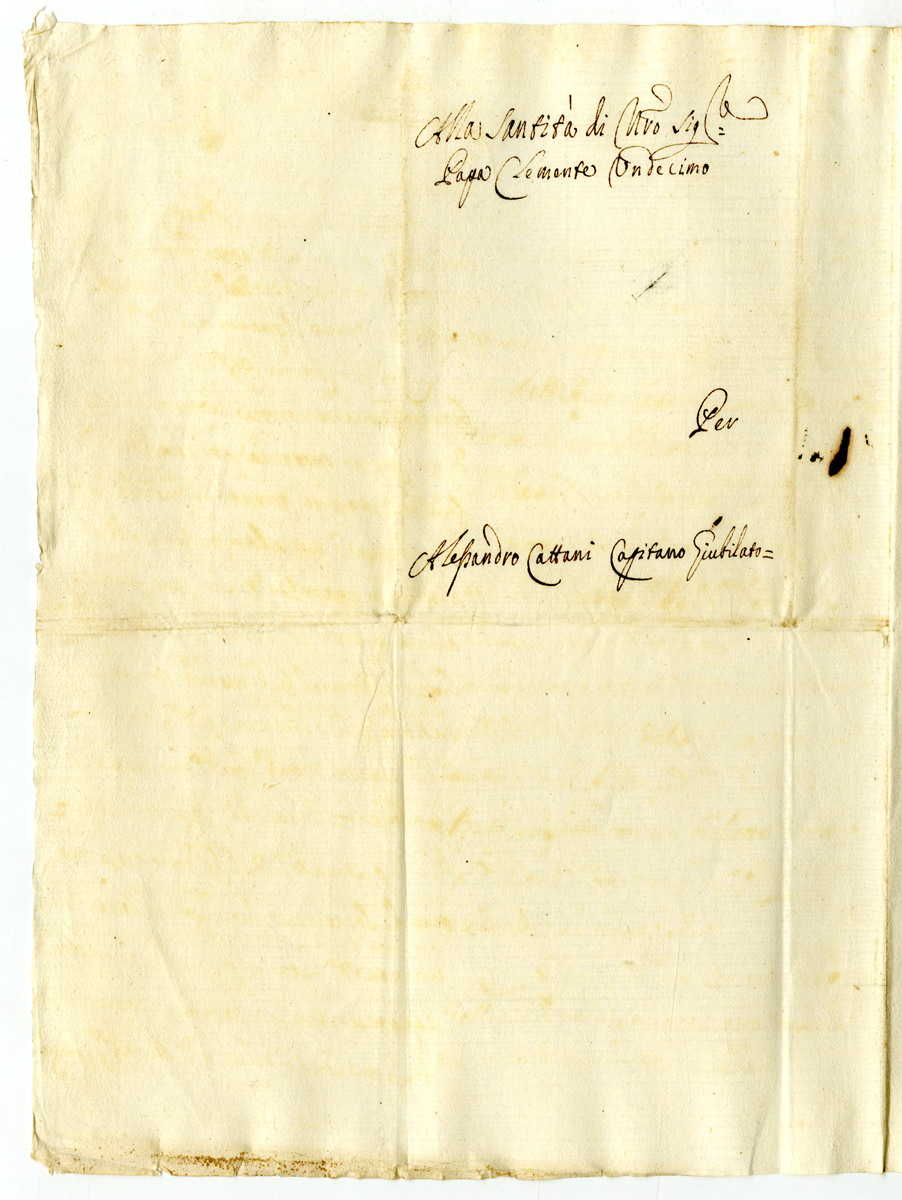 Alla Santità di Nro Sigre=
Papa Clemente Undecimo
Per
Alessandro Cattani Capitano Giubilato=